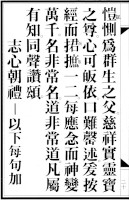 愷惻爲群生之父慈祥實靈寶
之尊心可皈依口難罄述爰按
經而捃摭一二每應念而神變
萬千名非常名道非常道凡屬
有知同聲讚頌
志心朝禮以下每句加